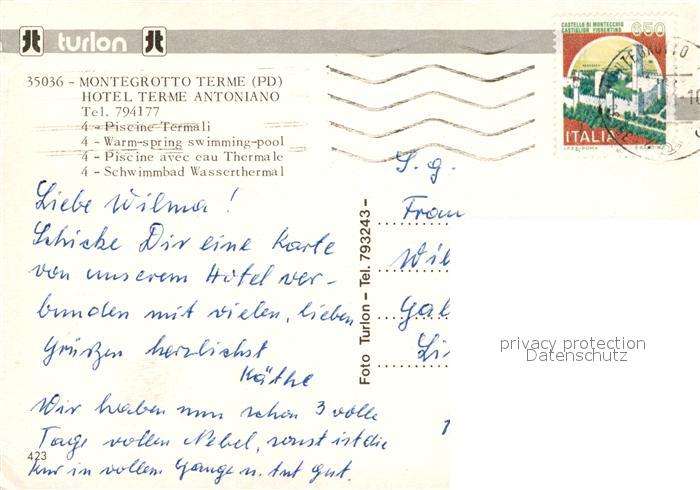 turlon
35036 - MONTEGROTTO TERME (PD)
HOTEL TERME ANTONIANO
Tel. 794177
4 - Piscine Termali
4 - Warm-spring swimming-pool
4 - Piscine avec eau Thermale
4 - Schwimmbad Wasserthermal
Liebe Wilma!
Schicke Dir eine Karte
von unserem Hotel ver-
bunden mit vielen, lieben
Grüßen herzlichst
Käthe
Wir haben nun schon 3 volle
Tage vollen Nebel, sonst ist die
Kur in vollem Gange u. tut gut.
423
Foto Turlon - Tel. 793243 -
CASTELLO DI MONTECCHIO
CASTIGLION FIORENTINO
650
ITALIA
MONTEGROTTO
S. g.
Frau
Wil
Gal
privacy protection
Datenschutz